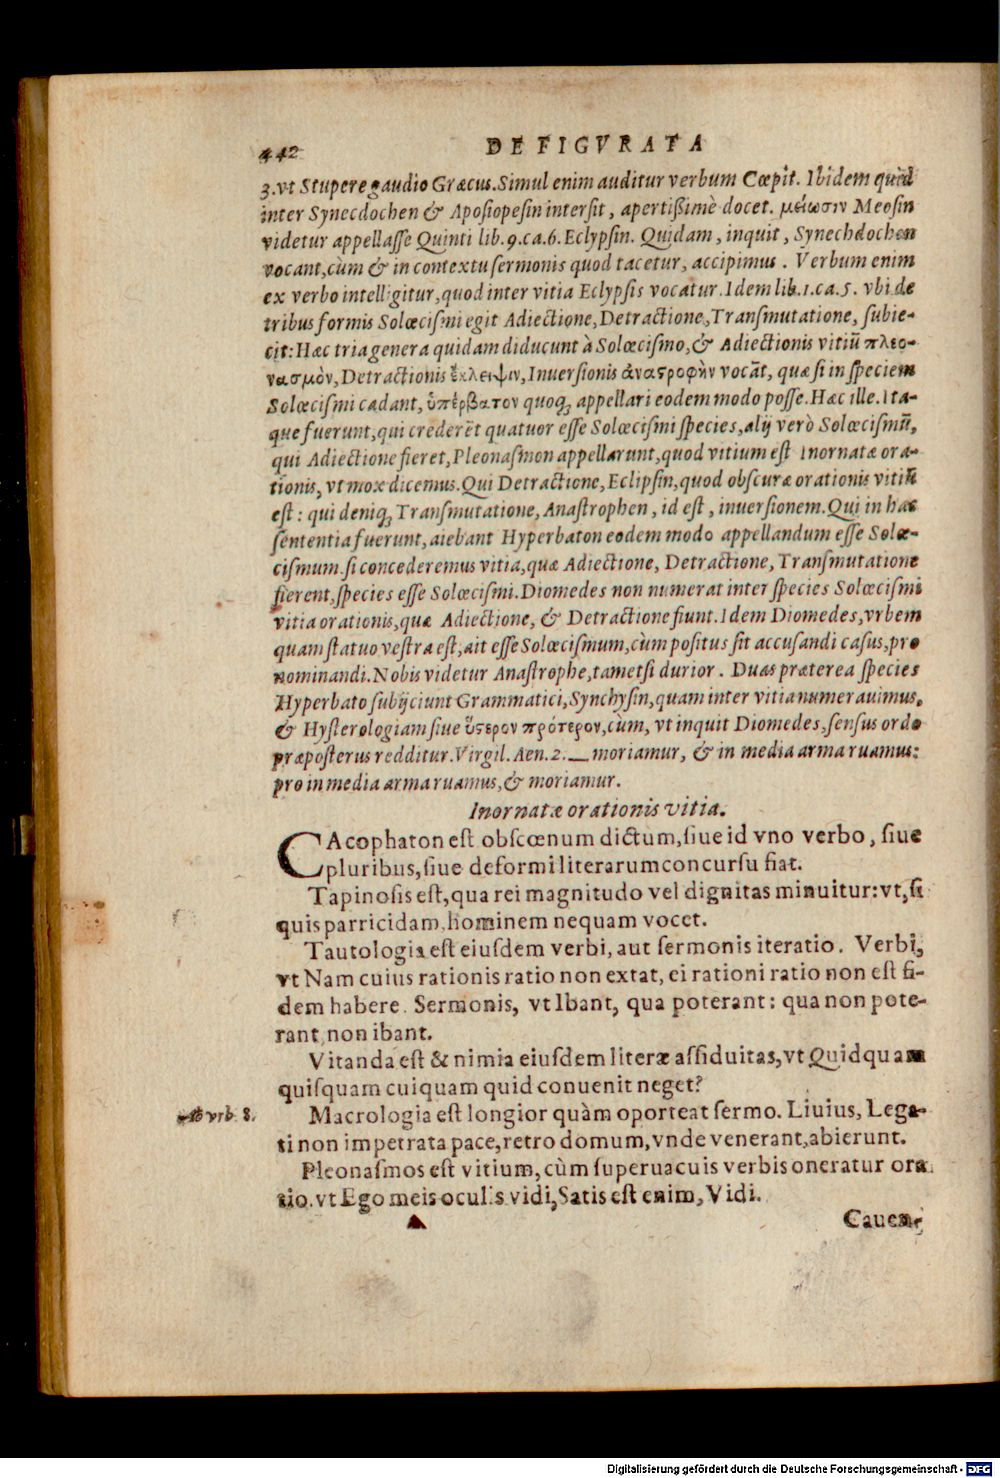 442 DE FIGVRATA
3. vt Stupere gaudio Græcus. Simul enim auditur verbum Cœpit. Ibidem quid
inter Synecdochen & Aposiopesin intersit, apertißimè docet. μείωσιν Meosin
videtur appellasse Quinti lib. 9. ca. 6. Eclypsin. Quidam, inquit, Synechdochen
vocant, cùm & in contextu sermonis quod tacetur, accipimus. Verbum enim
ex verbo intelligitur, quod inter vitia Eclypsis vocatur. Idem lib. 1. ca. 5. vbi de
tribus formis Solœcismi egit Adiectione, Detractione, Transmutatione, subie-
cit: Hæc tria genera quidam diducunt à Solœcismo, & Adiectionis vitiũ πλεο-
νασμὸν, Detractionis ἔκλειψιν, Inuersionis ἀναστροφὴν vocāt, quæ si in speciem
Solœcismi cadant, ὑπέρβατον quoq; appellari eodem modo posse. Hæc ille. Ita-
que fuerunt, qui crederēt quatuor esse Solœcismi species, alij verò Solœcismũ,
qui Adiectione fieret, Pleonasmon appellarunt, quod vitium est Inornatæ ora-
tionis, vt mox dicemus. Qui Detractione, Eclipsin, quod obscuræ orationis vitiũ
est: qui deniq; Transmutatione, Anastrophen, id est, inuersionem. Qui in hac
sententia fuerunt, aiebant Hyperbaton eodem modo appellandum esse Solœ-
cismum. si concederemus vitia, quæ Adiectione, Detractione, Transmutatione
fierent, species esse Solœcismi. Diomedes non numerat inter species Solœcismi
vitia orationis, quæ Adiectione, & Detractione fiunt. Idem Diomedes, vrbem
quam statuo vestra est, ait esse Solœcismum, cùm positus sit accusandi casus, pro
nominandi. Nobis videtur Anastrophe, tametsi durior. Duas præterea species
Hyperbato subijciunt Grammatici, Synchysin, quam inter vitia numerauimus,
& Hysterologiam siue ὕστερον πρότερον, cùm, vt inquit Diomedes, sensus ordo
præposterus redditur. Virgil. Aen. 2. — moriamur, & in media arma ruamus:
pro in media arma ruamus, & moriamur.
Inornatæ orationis vitia.
CAcophaton est obscœnum dictum, siue id vno verbo, siue
pluribus, siue deformi literarum concursu fiat.
Tapinosis est, qua rei magnitudo vel dignitas minuitur: vt, si
quis parricidam, hominem nequam vocet.
Tautologia est eiusdem verbi, aut sermonis iteratio. Verbi,
vt Nam cuius rationis ratio non extat, ei rationi ratio non est fi-
dem habere. Sermonis, vt Ibant, qua poterant: qua non pote-
rant, non ibant.
Vitanda est & nimia eiusdem literæ assiduitas, vt Quidquam
quisquam cuiquam quid conuenit neget?
vrb. 8. Macrologia est longior quàm oporteat sermo. Liuius, Lega-
ti non impetrata pace, retro domum, vnde venerant, abierunt.
Pleonasmos est vitium, cùm superuacuis verbis oneratur ora
tio. vt Ego meis oculis vidi, Satis est enim, Vidi.
Cauen-
Digitalisierung gefördert durch die Deutsche Forschungsgemeinschaft - DFG